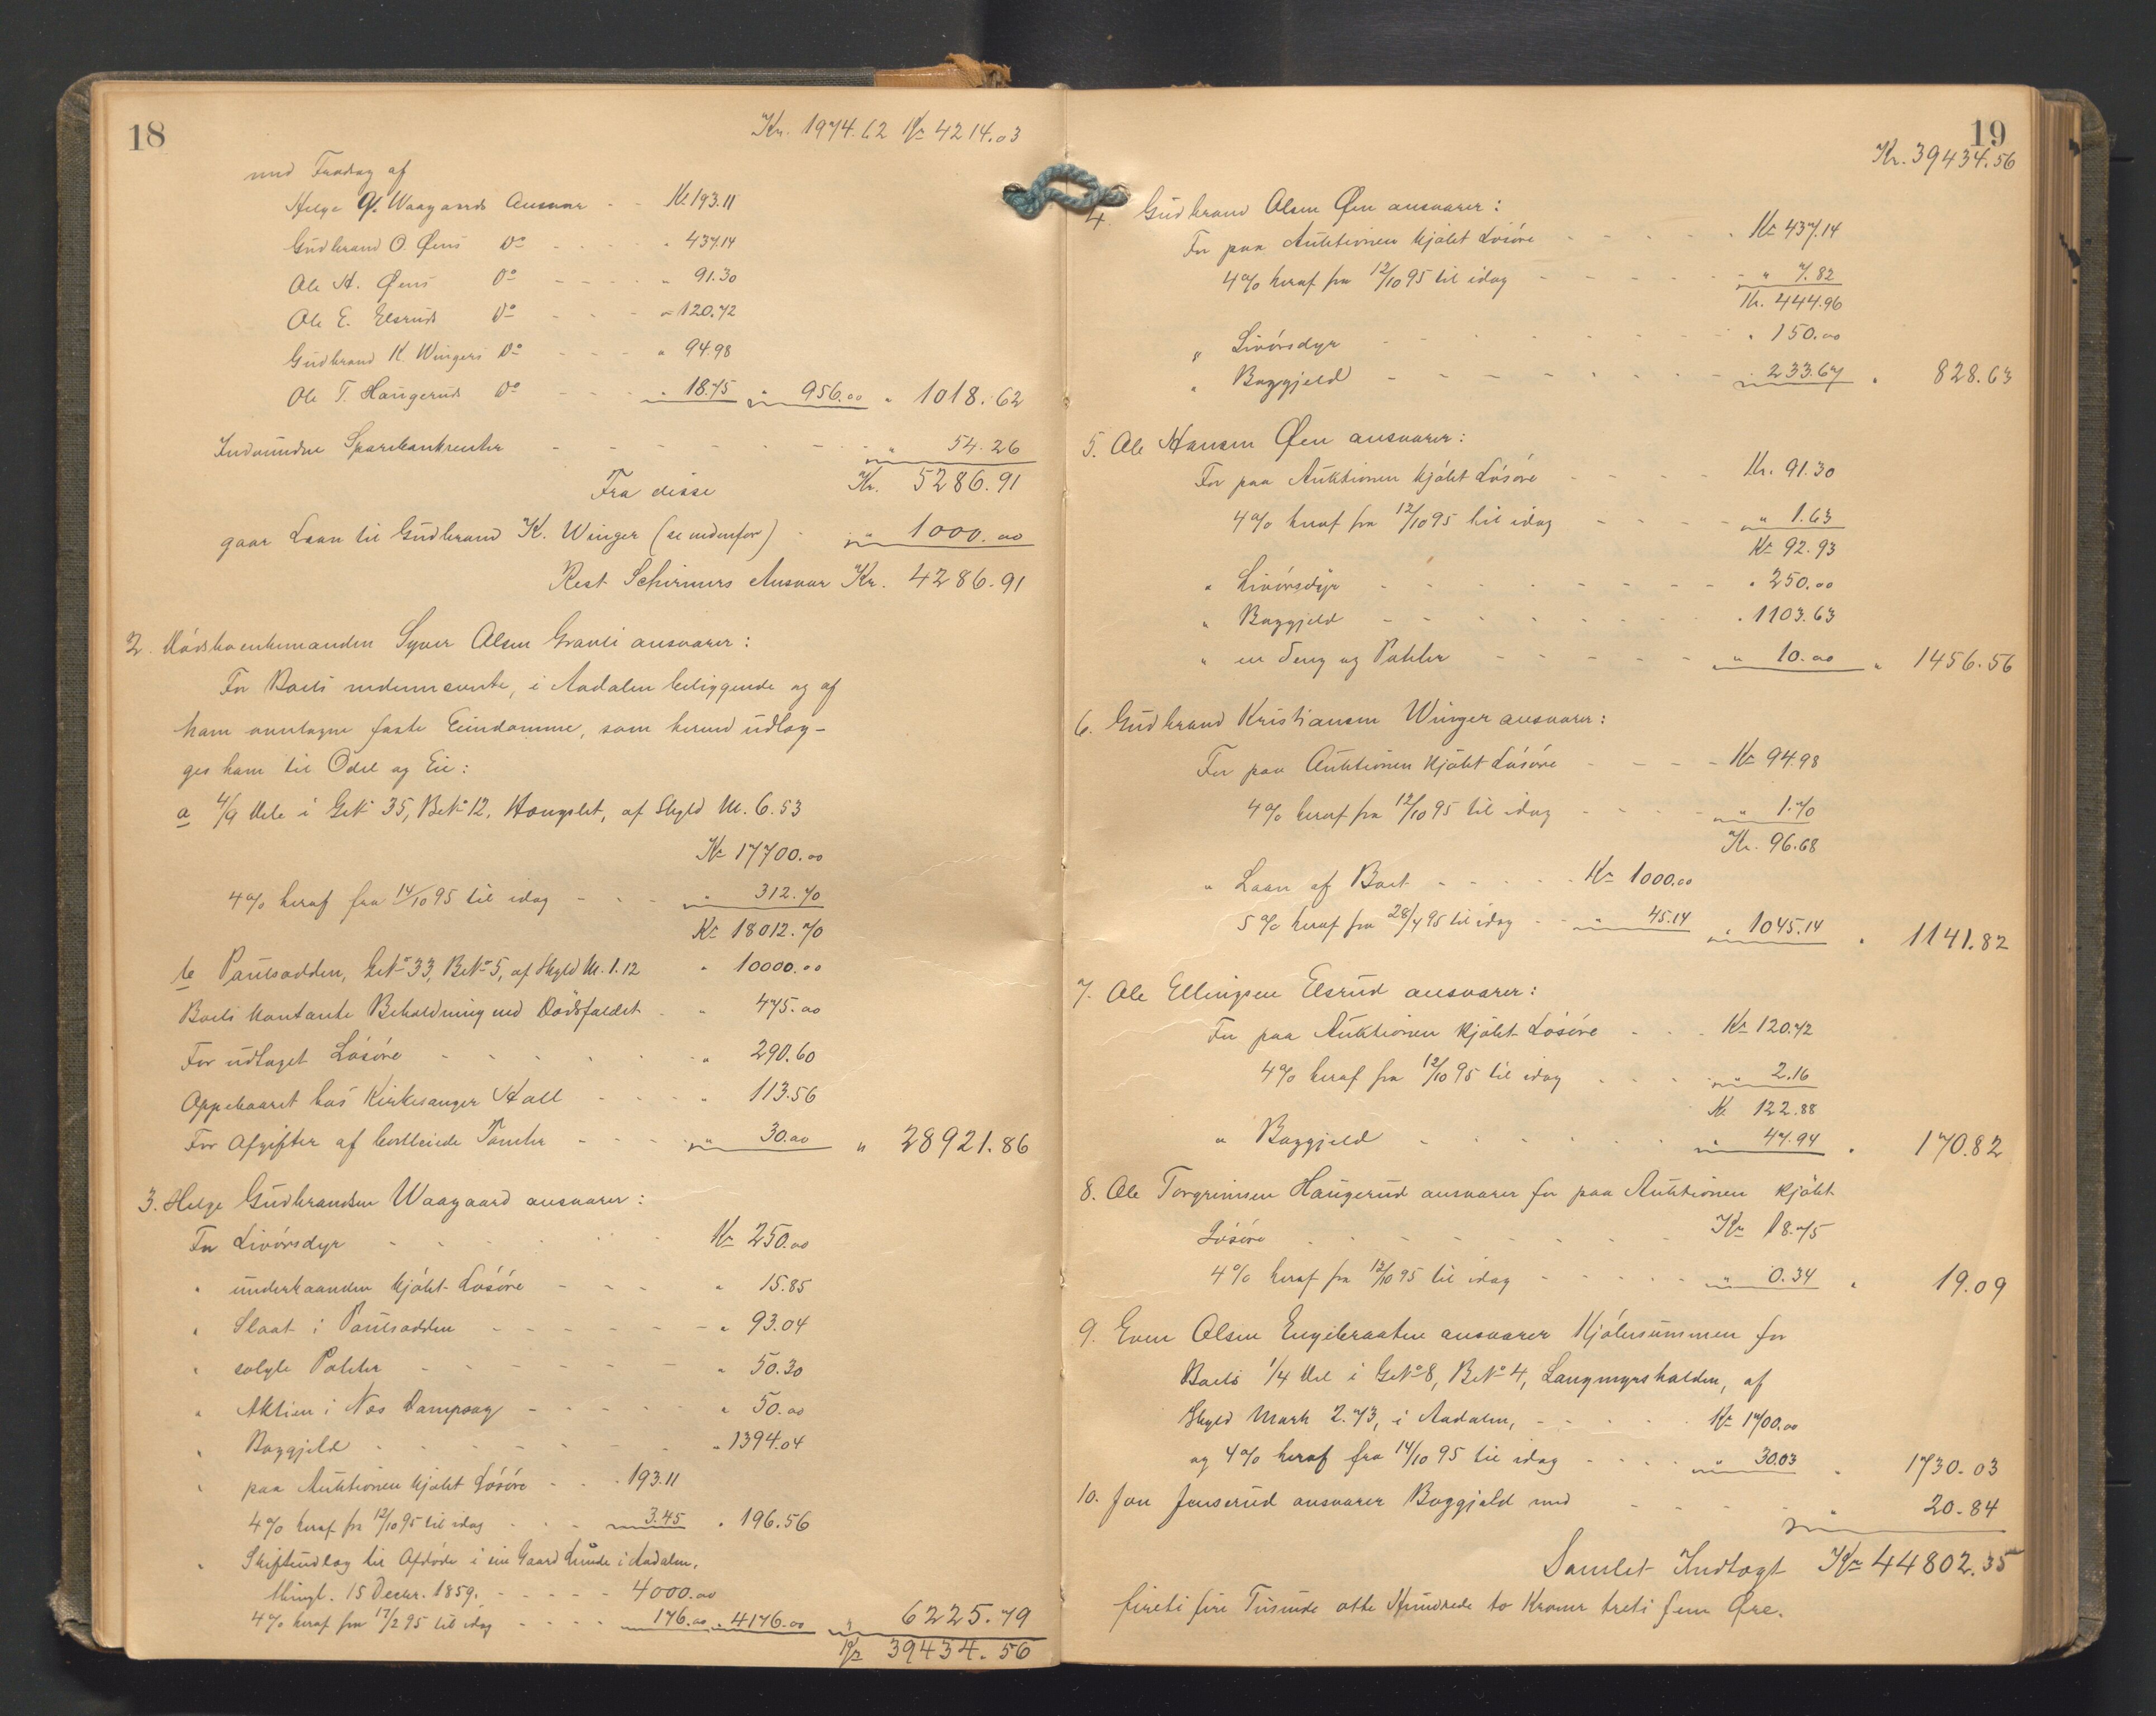 18
Kr. 1974.62 Kr 4214.03
med Fradrag af
Helge G. Waagaards Ansvar - - Kr 193.11
Gudbrand O. Øens Do - - - - " 437.14
Ole H. Øens Do - - - - " 91.30
Ole E. Elsruds Do - - - " 120.72
Gudbrand K. Wingers Do - - - " 94.98
Ole T. Haugeruds Do - - - " 18.75 " 956.00 " 1018.62
Indvundne Sparebankrenter - - - - - - " 54.26
Fra disse Kr. 5286.91
gaar Laan til Gudbrand K. Winger (se nedenfor) - " 1000.00
Rest Schirmers Ansvar Kr. 4286.91
2. Medhoentemanden Syver Olsen Gravli ansvarer:
For Boets nedennævnte, i Aadalen beliggende og af
ham overtagne faste Eiendomme, som herved udlæg-
ges ham til Odel og Eie:
a 4/9 Dele i GNo 35, BNo 12, Haugslet, af Skyld M. 6.53
Kr 17700.00
4% heraf fra 14/10 95 til idag - - - " 312.70
Kr 18012.70
b Paulsodden, GNo 33, BNo 5, af Skyld M. 1.12 " 10000.00
Boets kontante Beholdning ved Dødsfaldet - " 475.00
For udtaget Løsøre - - - - - - " 290.60
Oppebaaret hos Kirkesanger Hall - - - - " 113.56
For Afgifter af bortleiede Tomter - - - - " 30.00 " 28921.86
3. Helge Gudbrandsen Waagaard ansvarer:
For Livørsdyr - - - - - - Kr 250.00
" underhaanden kjøbt Løsøre - - - " 15.85
" Slaat i Paulsodden - - - - - - " 93.04
" solgte Poteter - - - - - - - " 50.30
" Aktien i Næs Dampsag - - - - - " 50.00
" Boggjeld - - - - - - - " 1394.04
" paa Auktionen kjøbt Løsøre - - . 193.11
4% heraf fra 12/10 95 til idag - - - 3.45 " 196.56
" Skifteudlæg til Afdøde i sin Gaard Lunde i Aadalen,
thingl. 15 Decbr. 1859. - - - - - 4000.00
4% heraf fra 17/2 95 til idag - - - - 176.00 " 4176.00 " 6225.79
Kr 39434.56
19
Kr. 39434.56
4. Gudbrand Olsen Øen ansvarer:
For paa Auktionen kjøbt Løsøre - - - - - Kr 437.14
4% heraf fra 12/10 95 til idag - - - - - " 7.82
Kr. 444.96
" Livørsdyr - - - - - - - " 150.00
" Boggjeld - - - - - - - - " 233.67 " 828.63
5. Ole Hansen Øen ansvarer:
For paa Auktionen kjøbt Løsøre - - - - Kr. 91.30
4% heraf fra 12/10 95 til idag - - - - " 1.63
Kr 92.93
" Livørsdyr - - - - - - - - " 250.00
" Boggjeld - - - - - - - - " 1103.63
" en Seng og Poteter - - - - - " 10.00 " 1456.56
6. Gudbrand Kristiansen Winger ansvarer:
For paa Auktionen kjøbt Løsøre - - - - Kr 94.98
4% heraf fra 12/10 95 til idag - - - - " 1.70
Kr. 96.68
" Laan af Boet - - - - - Kr 1000.00
5% heraf fra 28/4 95 til idag - - " 45.14 " 1045.14 " 1141.82
7. Ole Ellingsen Elsrud ansvarer:
For paa Auktionen kjøbt Løsøre - - - Kr 120.72
4% heraf fra 12/10 95 til idag - - - " 2.16
Kr 122.88
" Boggjeld - - - - - - - " 47.94 " 170.82
8. Ole Torgrimsen Haugerud ansvarer for paa Auktionen kjøbt
Løsøre - - - - - - - - Kr 18.75
4% heraf fra 12/10 95 til idag - - - - - " 0.34 " 19.09
9. Even Olsen Engebraaten ansvarer Kjøbesummen for
Boets 1/4 Del i GNo 8, BNo 4, Langmyrshalden, af
Skyld Mark 2.73, i Aadalen, - - - - - Kr 1700.00
og 4% heraf fra 14/10 95 til idag - - - - " 30.03 " 1730.03
10. Jon Jenserud ansvarer Boggjeld med - - - - - " 20.84
Samlet Indtægt Kr 44802.35
fireti fire Tusinde otte Hundrede to Kroner treti fem Øre.